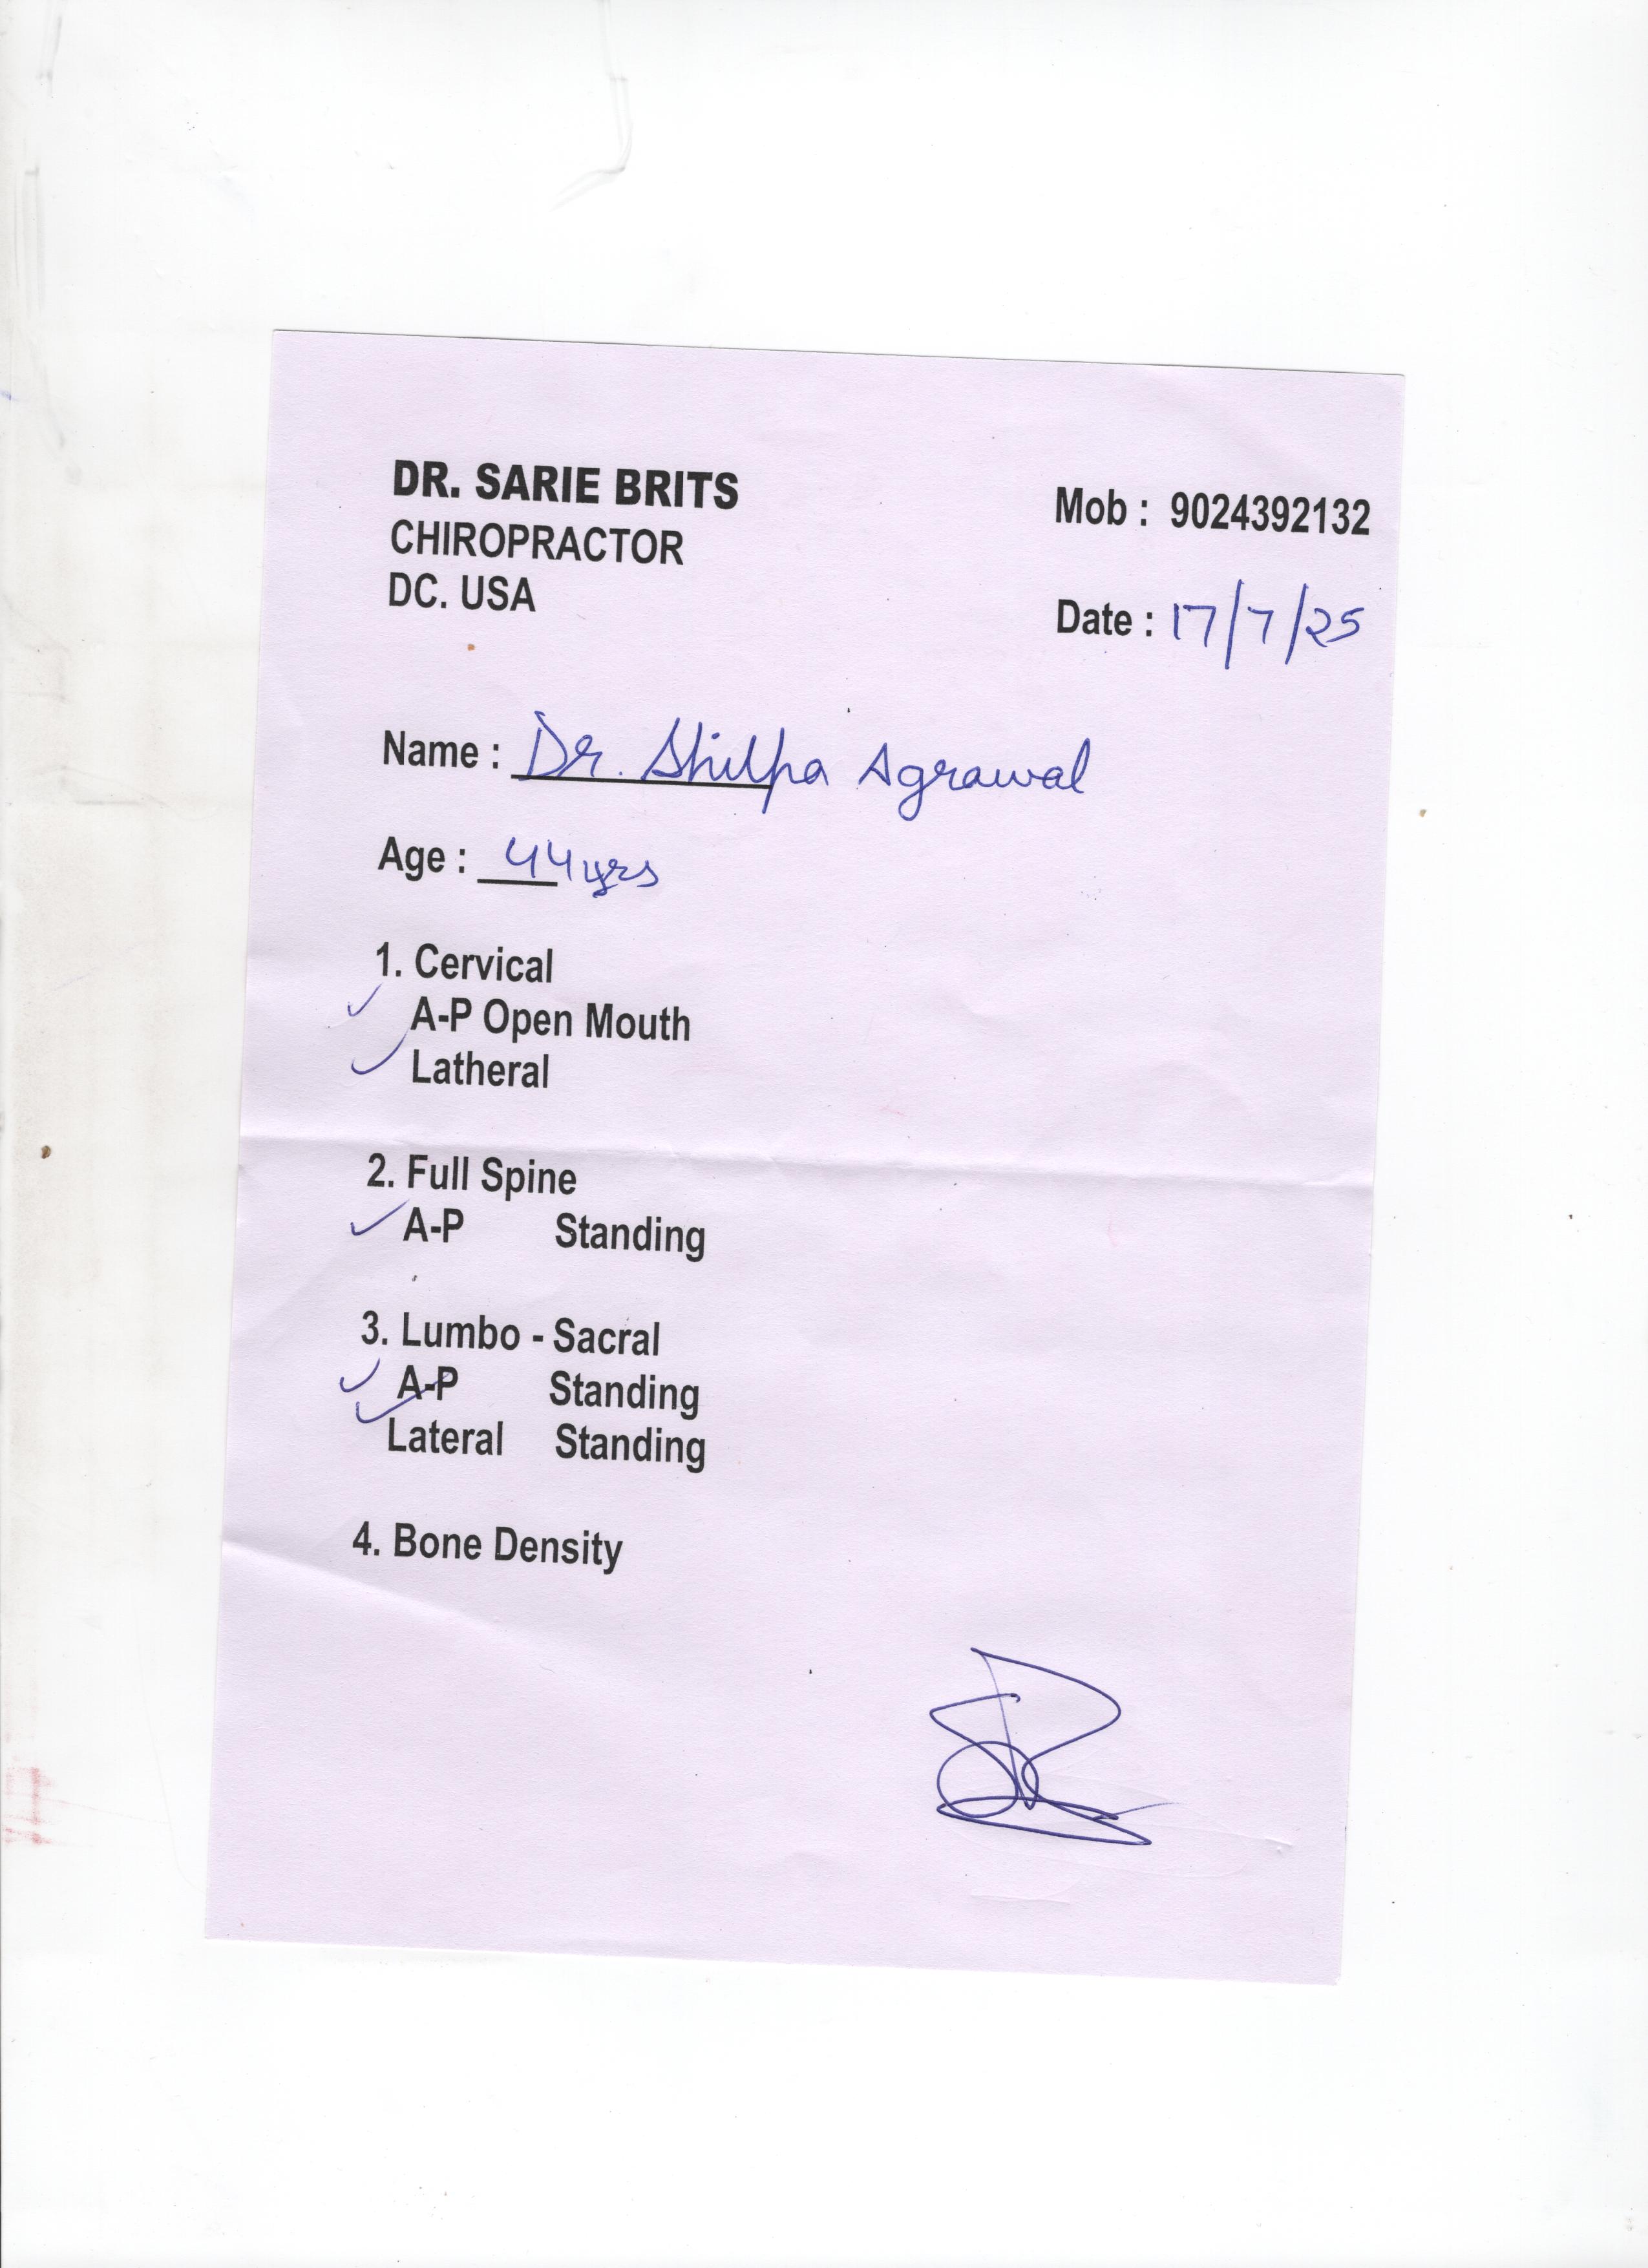 DR. SARIE BRITS
CHIROPRACTOR
DC. USA
Mob : 9024392132
Date : 17/7/25
Name : Dr. Shilpa Agrawal
Age : 44 yrs
1. Cervical
A-P Open Mouth
Latheral
2. Full Spine
A-P Standing
3. Lumbo - Sacral
A-P Standing
Lateral Standing
4. Bone Density